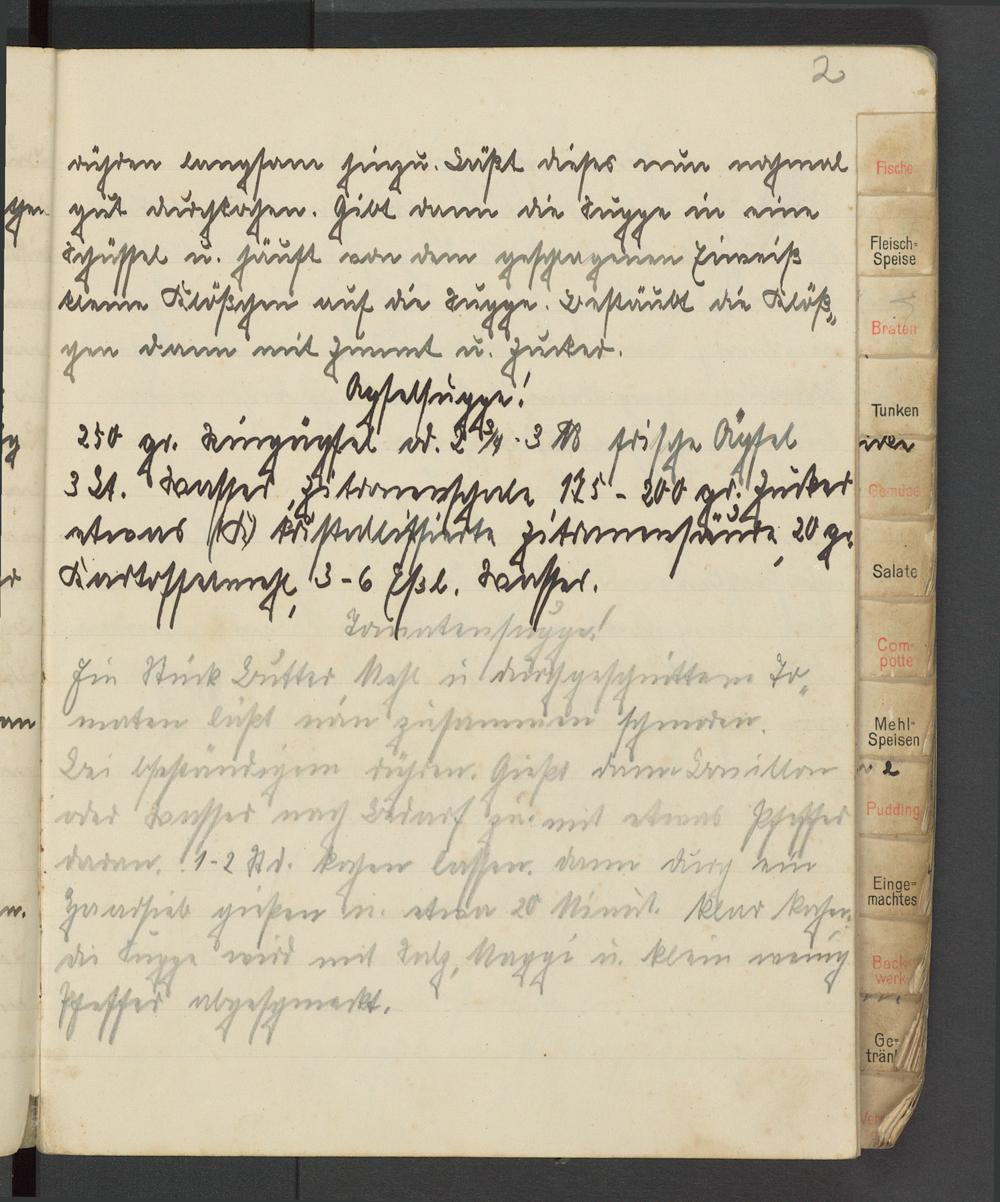 2
rühren langsam hinzu. Läßt dieses nun nochmal
gut durchkochen. Gibt dann die Suppe in eine
Schüssel u. häuft von dem geschlagenen Eiweiß
kleine Klößchen auf die Suppe. Bestäubt die Klöß„
chen dann mit Zimmt u. Zucker.
Apfelsuppe!
250 gr. Ringäpfel od. 2 3/4 - 3 ℔ frische Äpfel
3 Lt. Wasser, Zitronenschale 175 - 200 gr. Zucker
etwas (K) kristallissierte Zitronensäure, 20 gr.
Kartoffelmehl, 3-6 Eßl. Wasser.
Tomatensuppe!
Ein Stück Butter, Mehl u durchgeschnittene To„
maten läßt man zusammen schmoren.
Bei beständigem rühren. Gießt dann Bouillon
oder Wasser nach Bedarf zu mit etwas Pfeffer
daran. 1-2 Std. kochen lassen. dann durch ein
Haarsieb gießen u. etwa 20 Minut. klar kochen.
die Suppe wird mit Salz, Maggi u. klein wenig
Pfeffer abgeschmeckt.
Fische
Fleisch-
Speise
Braten
Tunken
Gemüse
Salate
Com-
potte
Mehl-
Speisen
2
Pudding
Einge-
machtes
Back-
werk
Ge-
trän